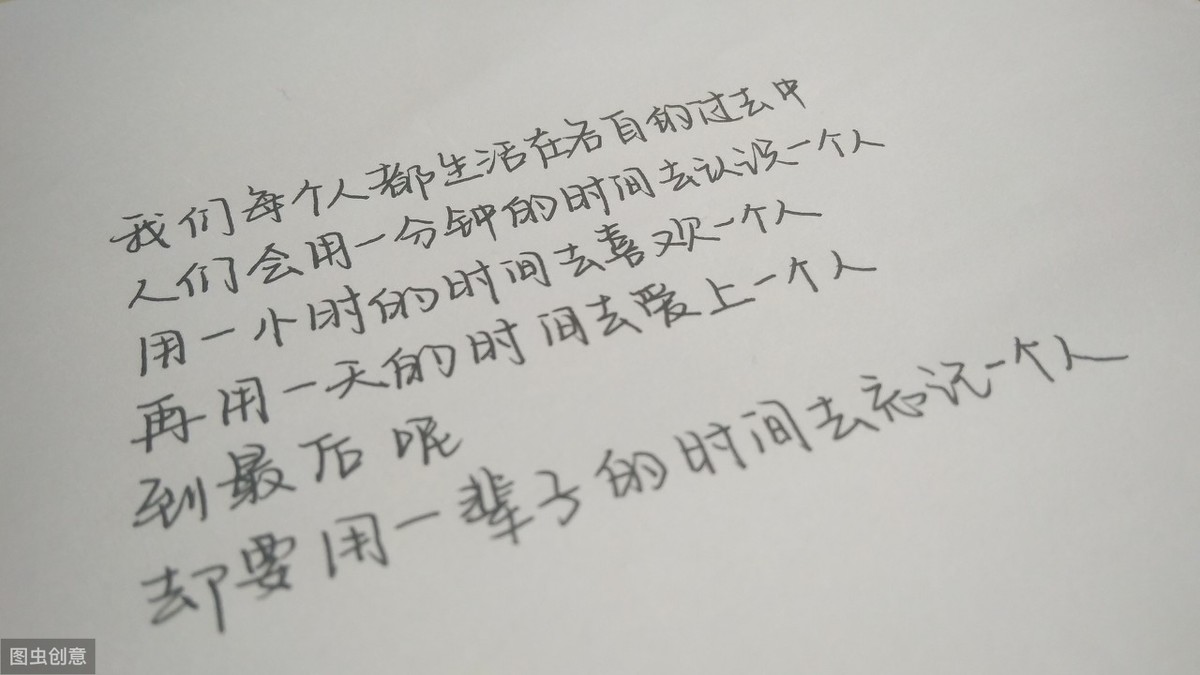 我们每个人都生活在各自的过去中
人们会用一分钟的时间去认识一个人
用一小时的时间去喜欢一个人
再用一天的时间去爱上一个人
到最后呢
却要用一辈子的时间去忘记一个人
图虫创意